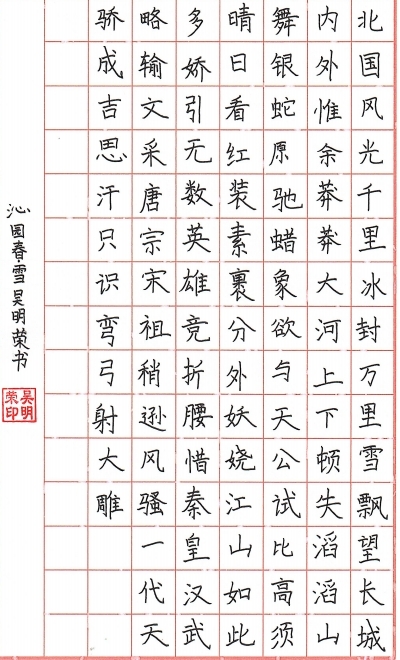 北国风光千里冰封万里雪飘望长城
内外惟余莽莽大河上下顿失滔滔山
舞银蛇原驰蜡象欲与天公试比高须
晴日看红装素裹分外妖娆江山如此
多娇引无数英雄竞折腰惜秦皇汉武
略输文采唐宗宋祖稍逊风骚一代天
骄成吉思汗只识弯弓射大雕
沁园春·雪吴明荣书
吴明
荣印